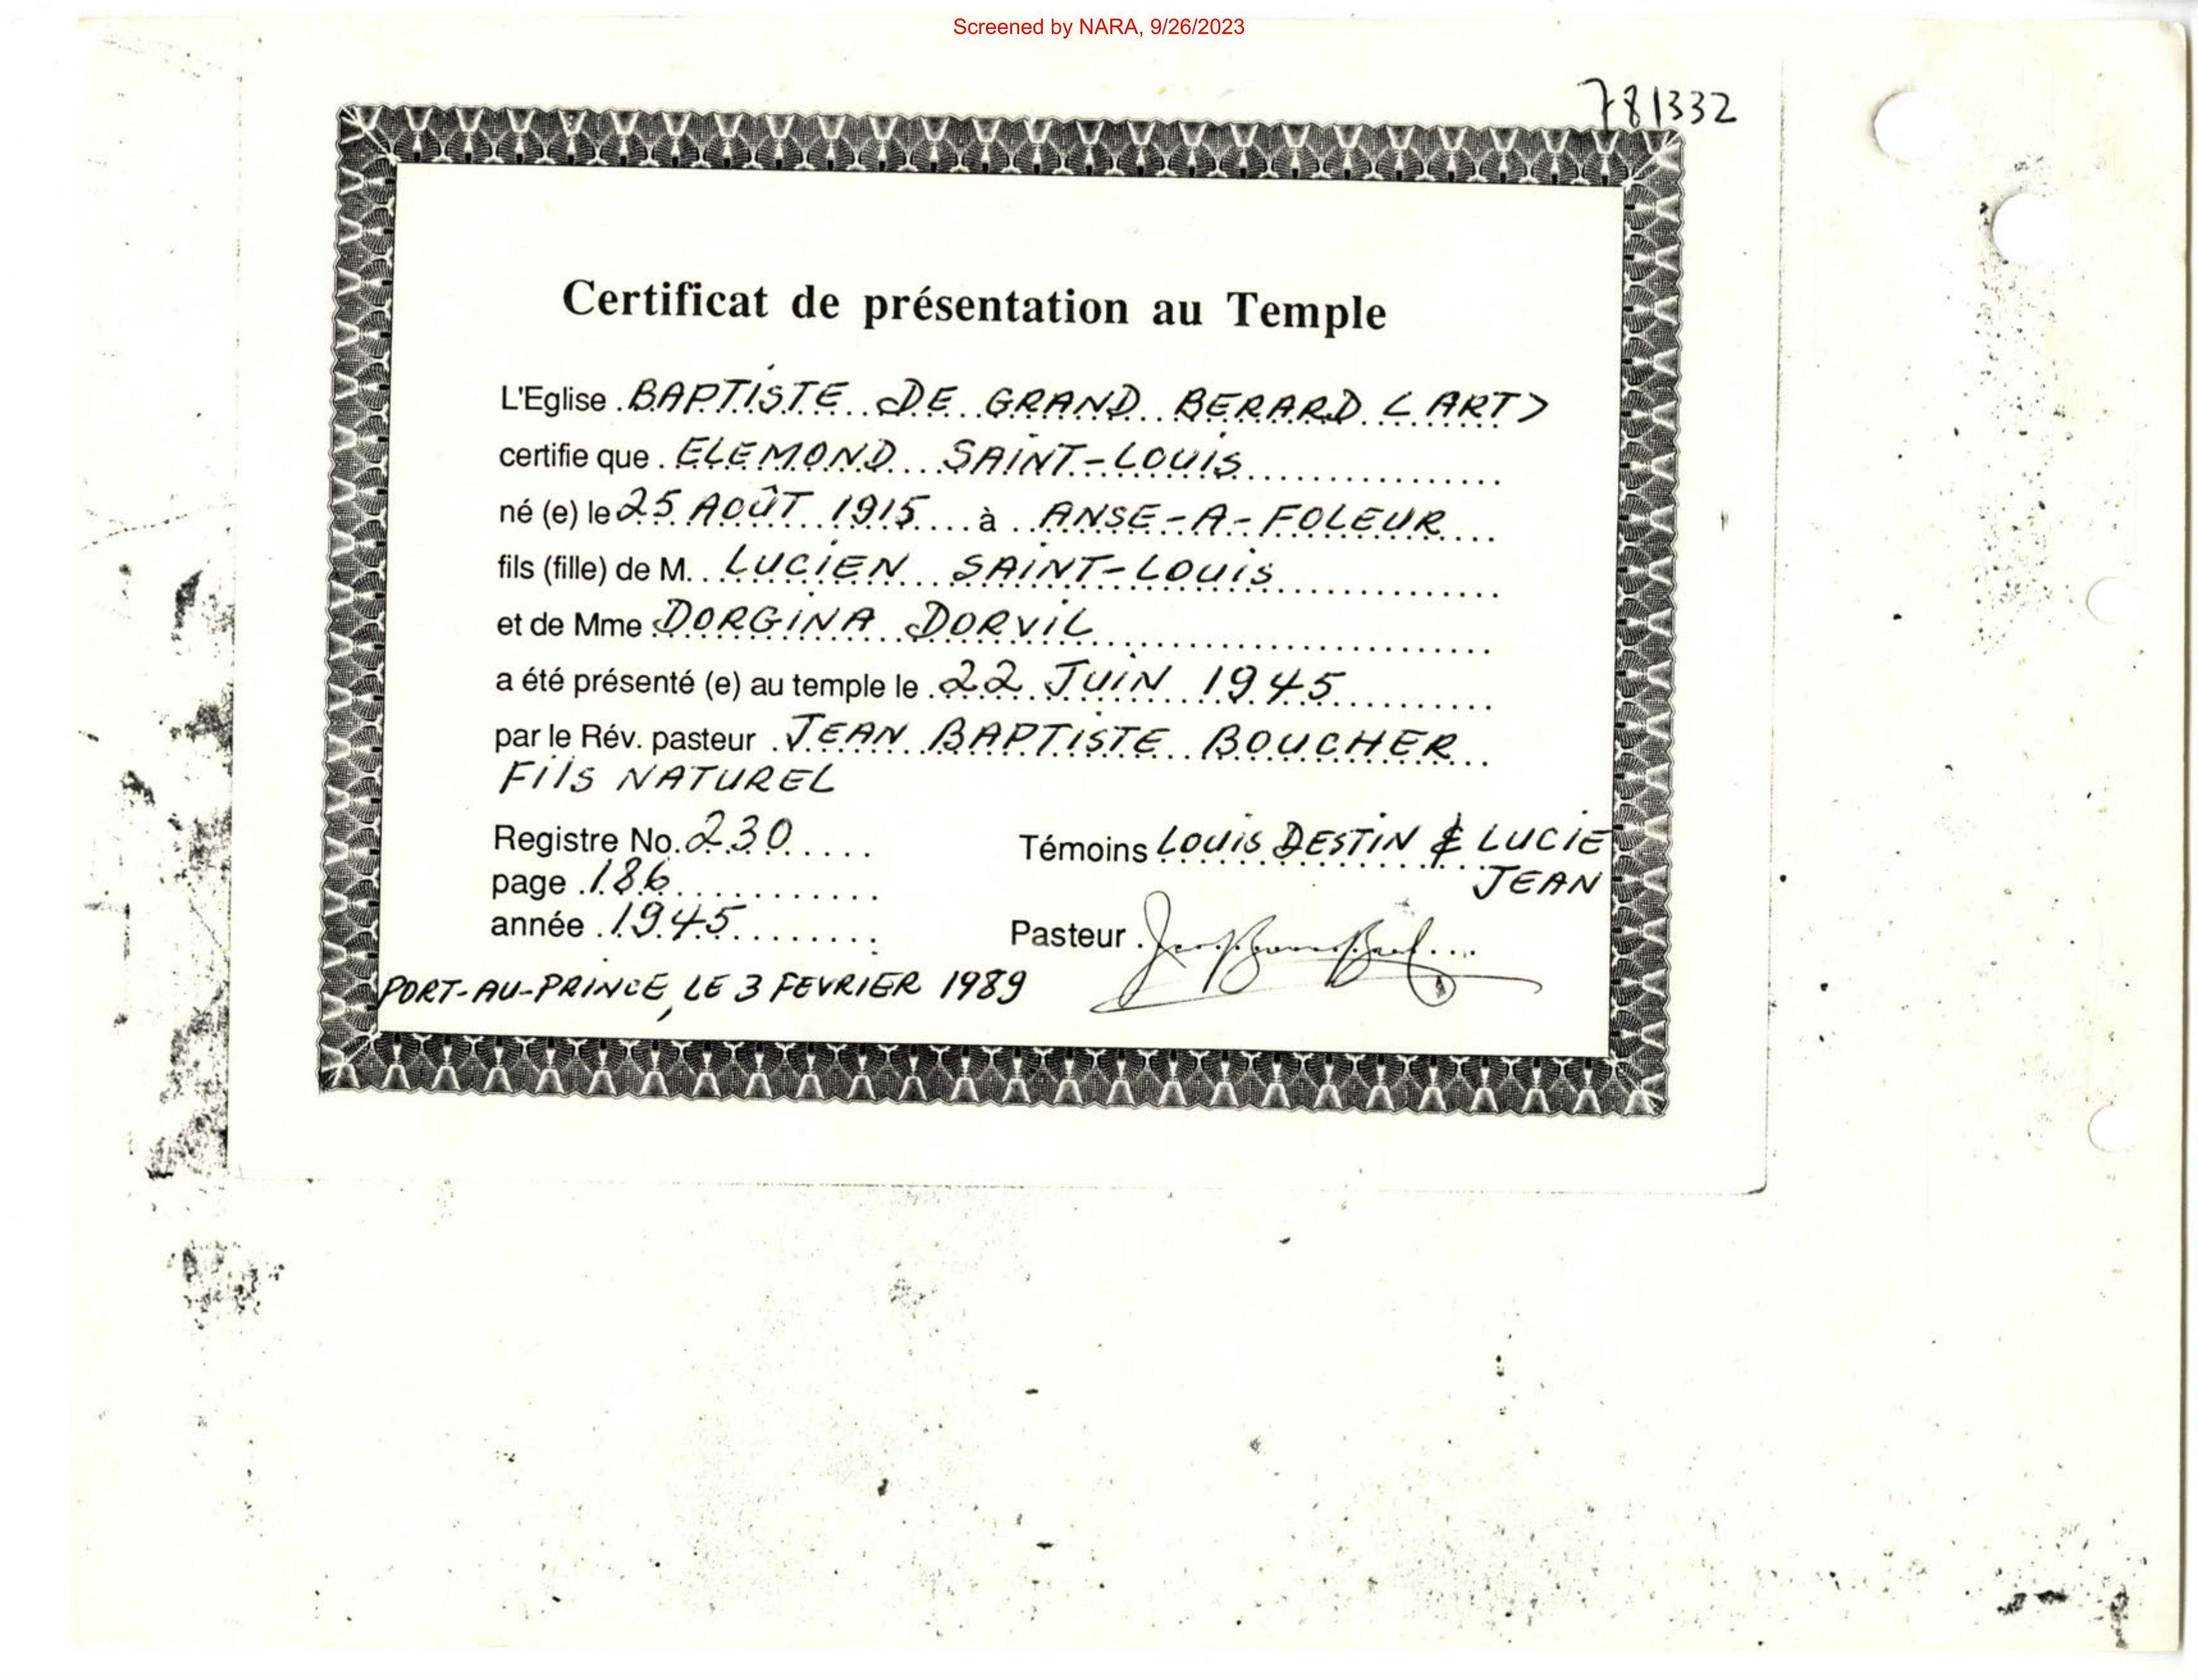 Screened by NARA, 9/26/2023
781332
Certificat de présentation au Temple
L'Eglise BAPTISTE DE GRAND BERARD < ART >
certifie que ELEMOND SAINT-LOUIS
né (e) le 25 AOÛT 1915 à ANSE-A-FOLEUR
fils (fille) de M. LUCIEN SAINT-LOUIS
et de Mme DORGINA DORVIL
a été présenté (e) au temple le 22 JUIN 1945
par le Rév. pasteur JEAN BAPTISTE BOUCHER
FILS NATUREL
Registre No. 230
page 186
année 1945
Témoins LOUIS DESTIN & LUCIE
JEAN
Pasteur
PORT-AU-PRINCE, LE 3 FEVRIER 1989